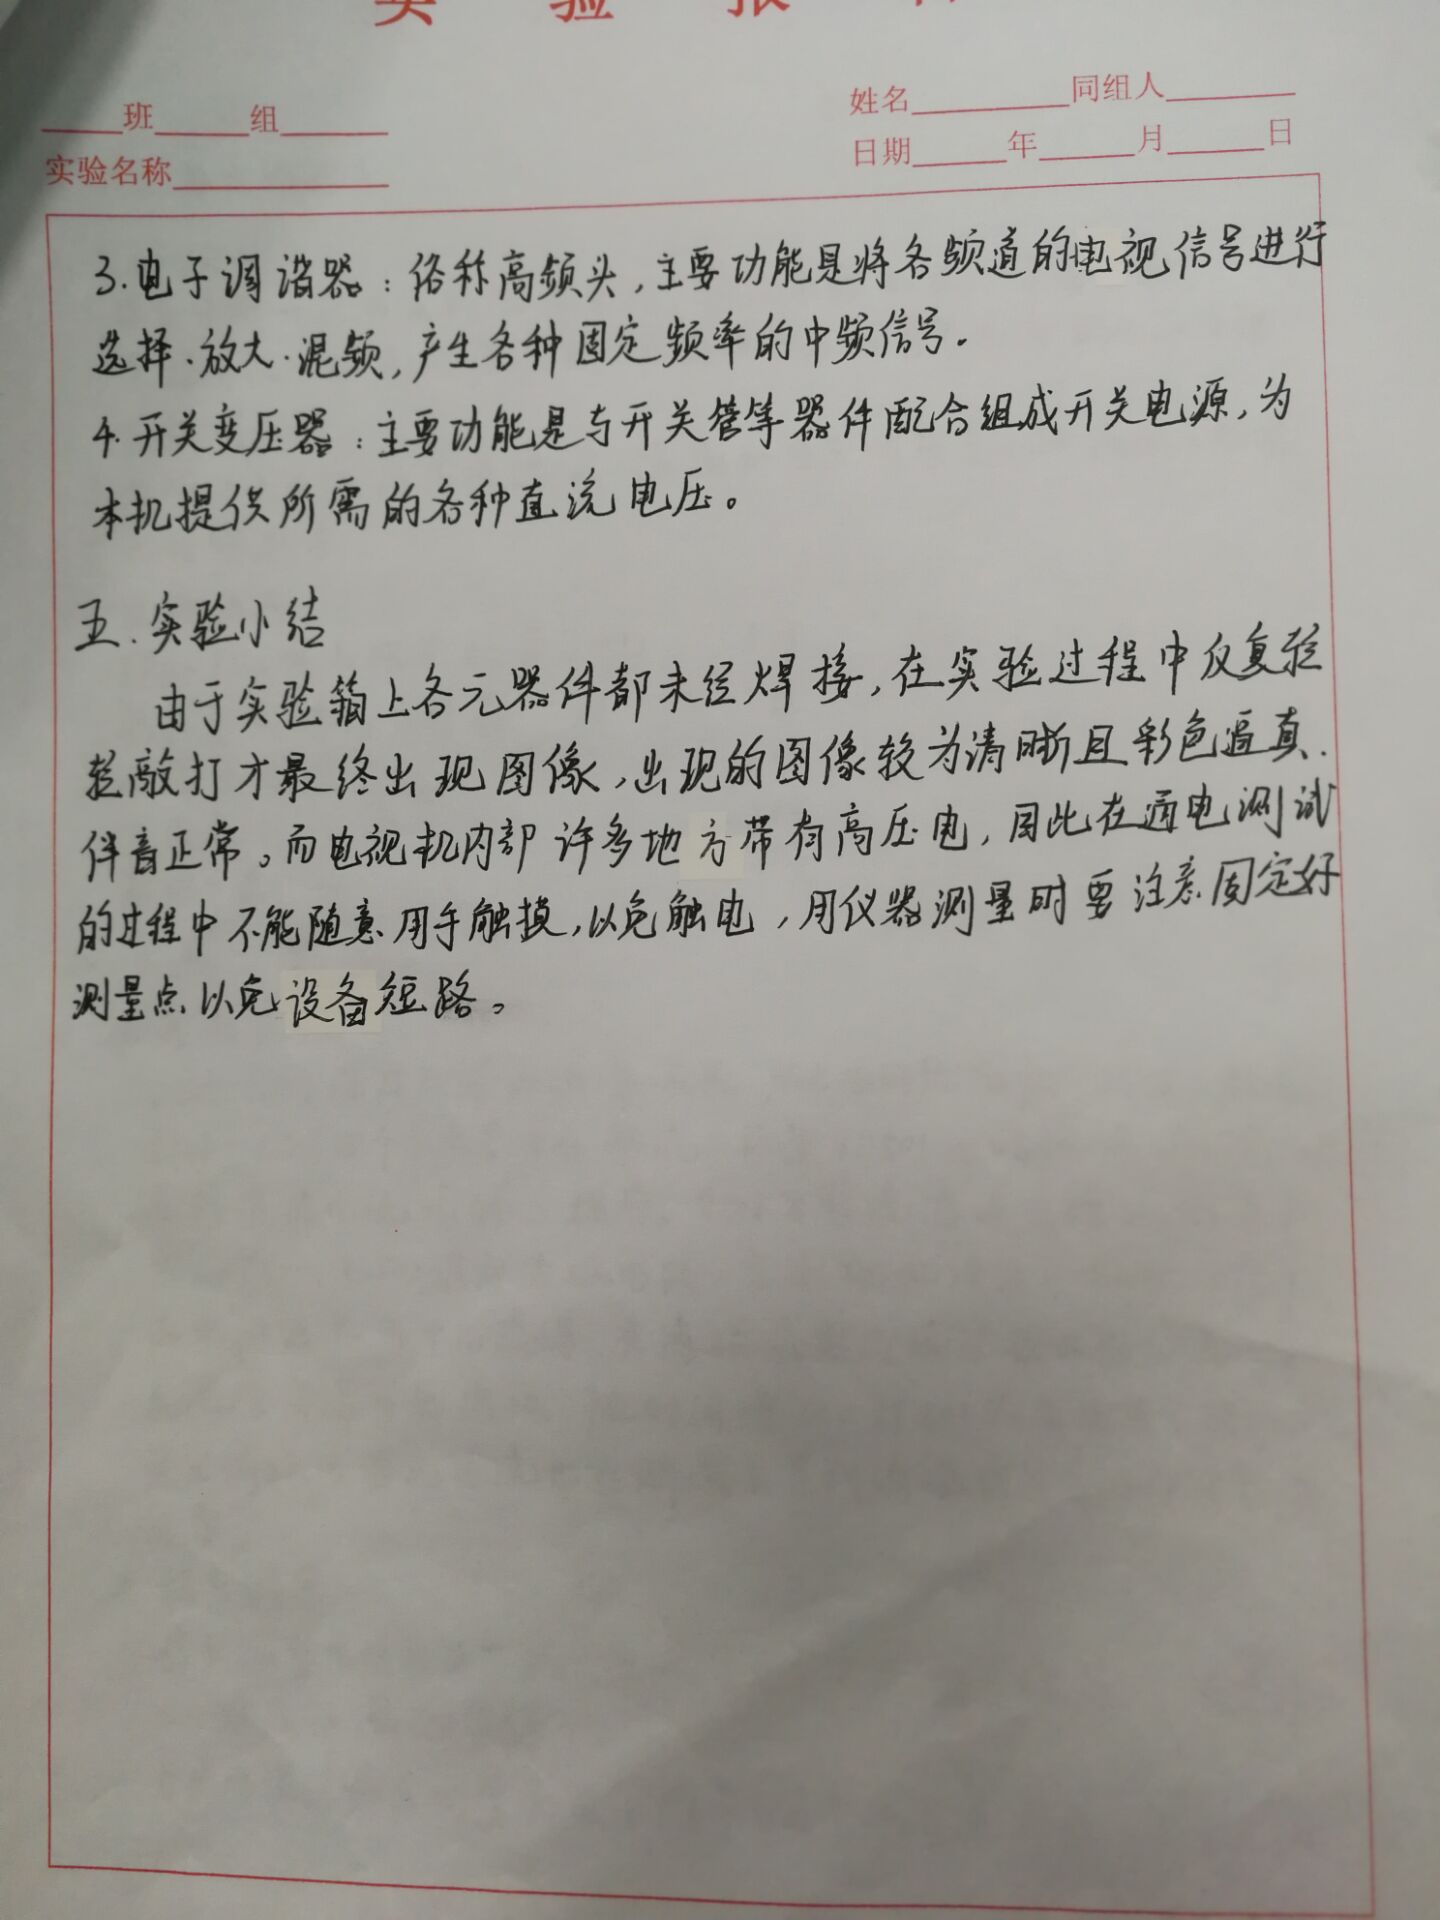 实验报告
班 组
姓名 同组人
实验名称
日期 年 月 日
3.电子调谐器：俗称高频头，主要功能是将各频道的电视信号进行
选择.放大.混频，产生各种固定频率的中频信号。
4.开关变压器：主要功能是与开关管等器件配合组成开关电源，为
本机提供所需的各种直流电压。
五.实验小结
由于实验箱上各元器件都未经焊接，在实验过程中反复轻
轻敲打才最终出现图像，出现的图像较为清晰且彩色逼真.
伴音正常。而电视机内部许多地方带有高压电，因此在通电测试
的过程中不能随意用手触摸，以免触电，用仪器测量时要注意固定好
测量点以免设备短路。